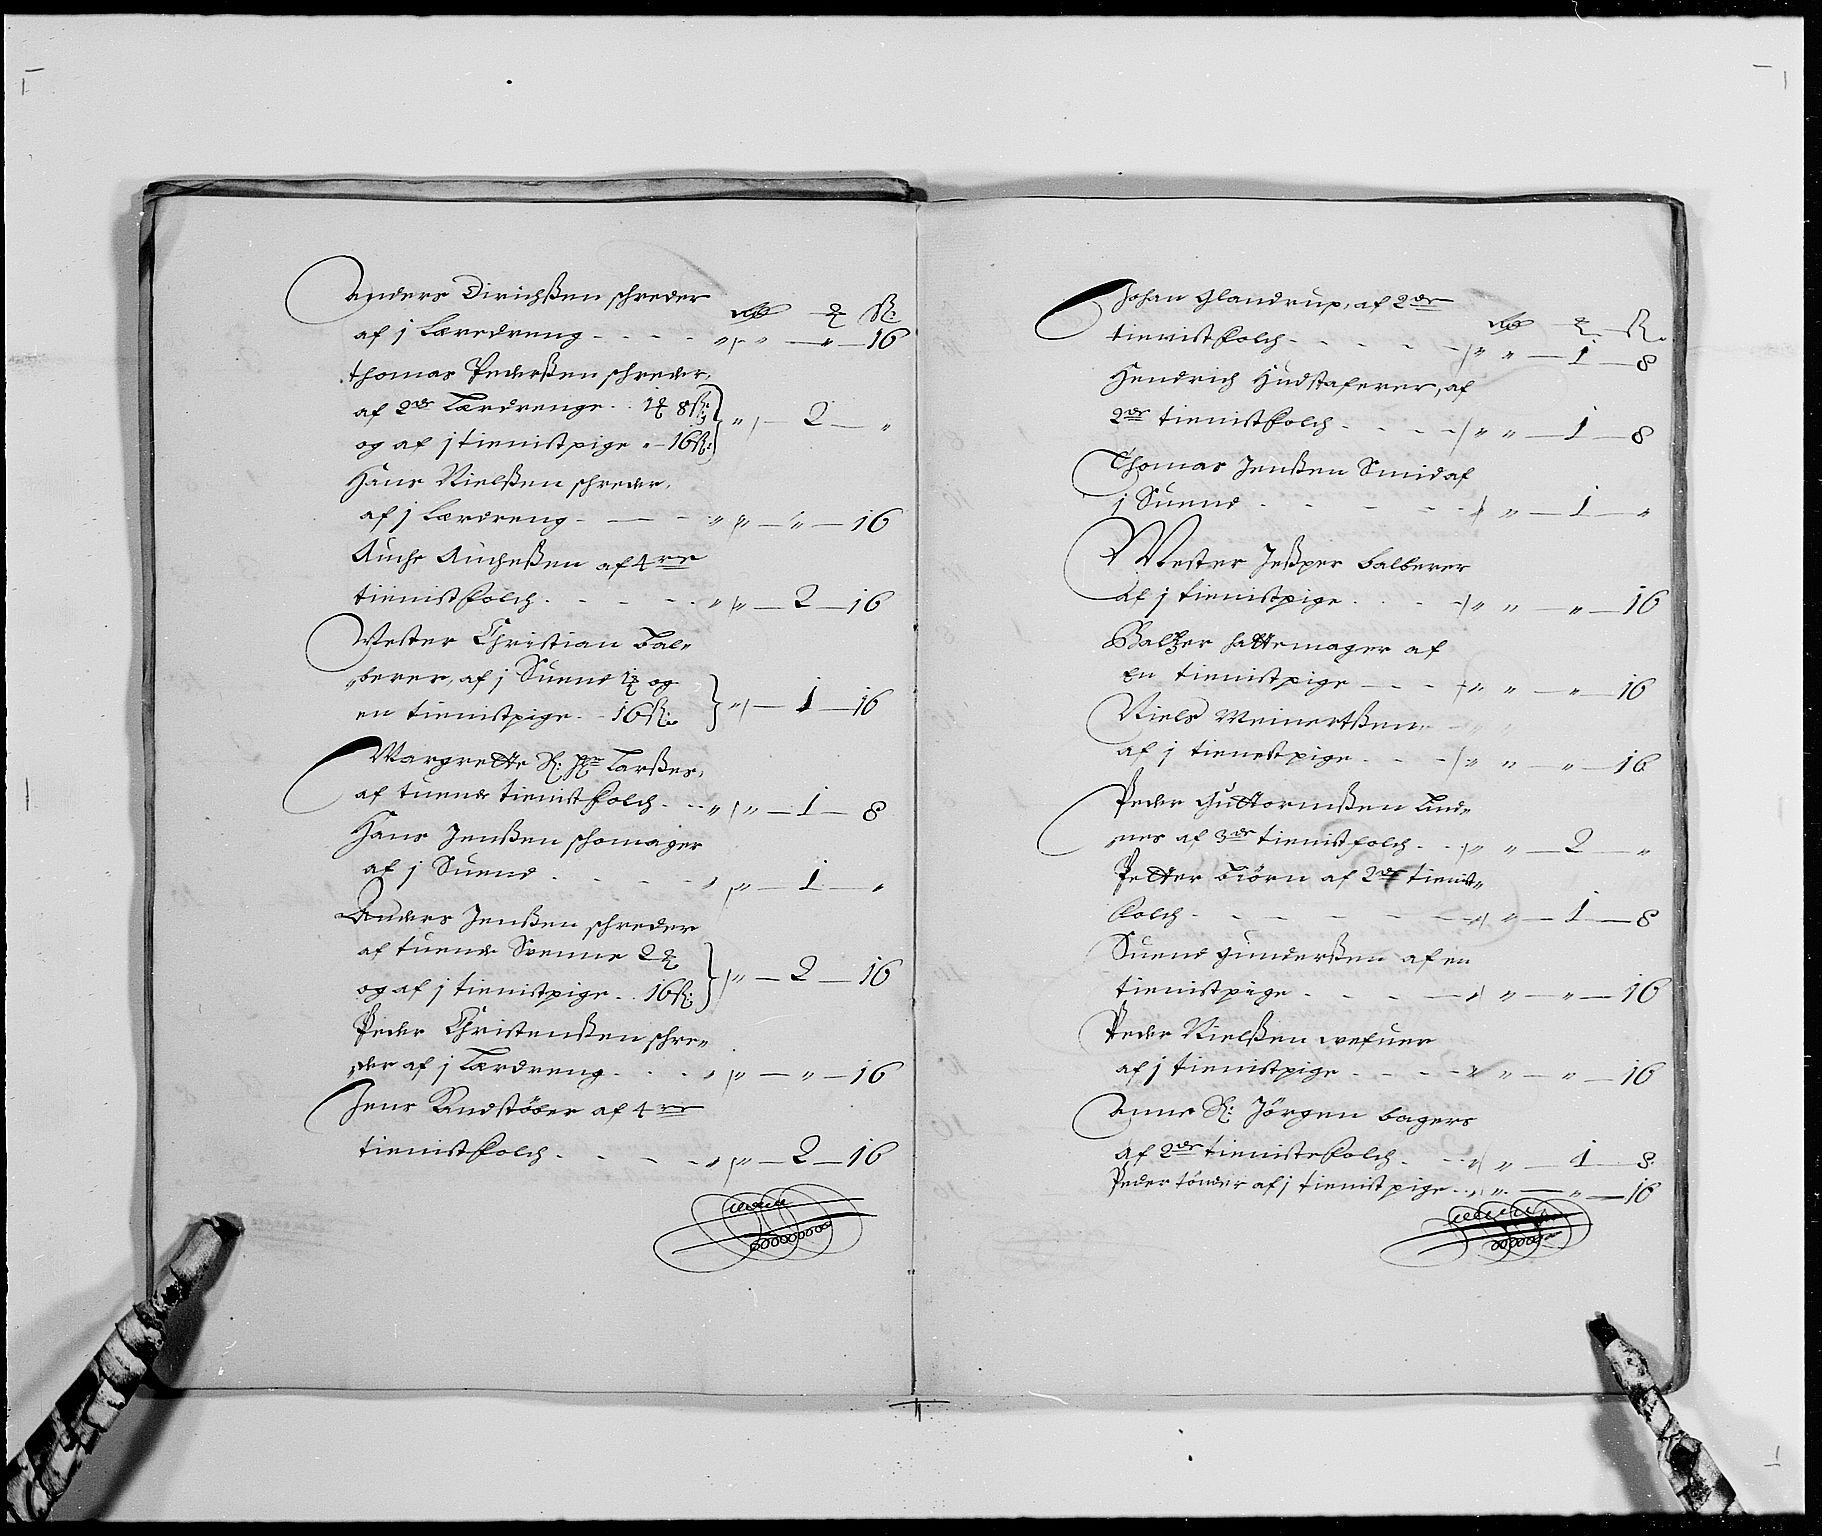 Anders Dirichßen schreder
af j Læredreng - - - - " " - " - 16
Thomas Pederßen schreder,
af 2de Lærdrenge .. 1 8ß:
og af j tienistpige " - 16ß: " - 2 - "
Hans Nielßen schreder,
af j Lærdreng - - - " " - " - 16
Auche Aucheßen af 4re
tienistfolch - - - - " " - 2 - 16
Mester Christian Bal=
=berer, af j Suend 1 og
en tienistpige - 16ß: " - 1 - 16
Margrette Sl: Hr Larßes,
af tuende tienistfolch - - " " - 1 - 8
Hans Jenßen schomager
af j Suend - - - - " " - 1 - "
Anders Jenßen schreder
af tuende Svenne 2
og af j tienistpige .. 16ß: " - 2 - 16
Peder Christenßen schre=
=der af j Lærdreng - - - " " - " - 16
Jens Kandstøber af 4re
tienistfolch - - - - " " - 2 - 16
Johan Glandrup, af 2de
tienistfolch - - - - " " - 1 - 8
Hendrich Hudstaferer, af
2de tienistfolch - - - - " " - 1 - 8
Thomas Jenßen Smid af
j Suend - - - - " - 1 - "
Mester Jeßper balberer
af j tienistpige - - - " " - " - 16
Baltzer hattemager af
En tienistpige - - - " " - " - 16
Niels Meinertßen
af j tienestpige - - - " " - " - 16
Peder Guttormßen Lund=
=nes af 3de tienistfolch - - " " - 2 - "
Petter Biørn af 2de tienist=
folch - - - - - " - 1 - 8
Suend Gunderßen af en
tienistpige - - - - " - " - 16
Peder Nielßen wefuer
af j tienistpige - - - " " - " - 16
Anne Sl: Jørgen bagers
af 2de tienistefolch - - " " - 1 - 8
Peder tønder af j tienistpige - " - " - 16